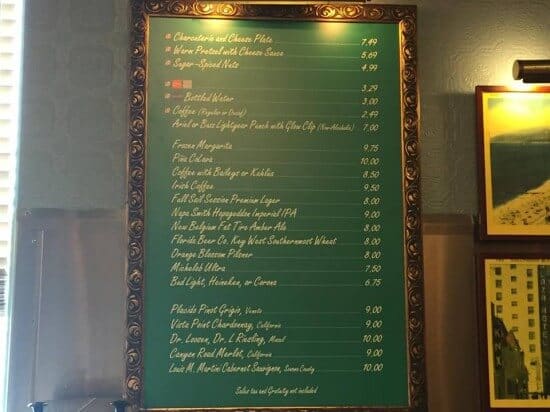 Charcuterie and Cheese Plate 7.49
Warm Pretzel with Cheese Sauce 5.69
Sugar-Spiced Nuts 4.99
3.29
Bottled Water 3.00
Coffee (Regular or Decaf) 2.49
Ariel or Buzz Lightyear Punch with Glow Clip (Non-Alcoholic) 7.00
Frozen Margarita 9.75
Piña CoLava 10.00
Coffee with Baileys or Kahlua 8.50
Irish Coffee 9.50
Full Sail Session Premium Lager 8.00
Napa Smith Hopageddon Imperial IPA 9.00
New Belgium Fat Tire Amber Ale 8.00
Florida Beer Co. Key West Southernmost Wheat 8.00
Orange Blossom Pilsner 8.00
Michelob Ultra 7.50
Bud Light, Heineken, or Corona 6.75
Placido Pinot Grigio, Veneto 9.00
Vista Point Chardonnay, California 9.00
Dr. Loosen, Dr. L Riesling, Mosel 10.00
Canyon Road Merlot, California 9.00
Louis M. Martini Cabernet Sauvignon, Sonoma County 10.00
Sales tax and Gratuity not included